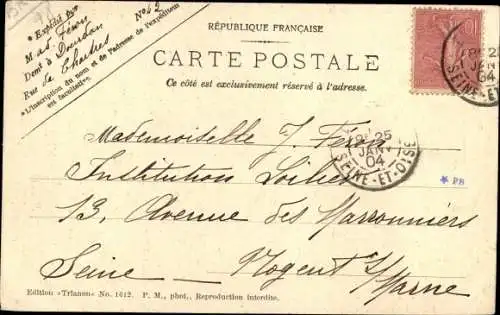 No 2
* Expédié par
Mad. Féron
Demt à Dourdan
Rue de Chartres
*L'inscription du nom et de l'adresse de l'expéditeur
est facultative.
RÉPUBLIQUE FRANÇAISE
CARTE POSTALE
Ce côté est exclusivement réservé à l'adresse.
25
JANV
04
SEINE-ET-OISE
Mademoiselle J. Féron
Institution
13, Avenue des Marronniers
Seine — Nogent s/Marne
* PB
Edition «Trianon» No. 1612. P. M., phot., Reproduction interdite.